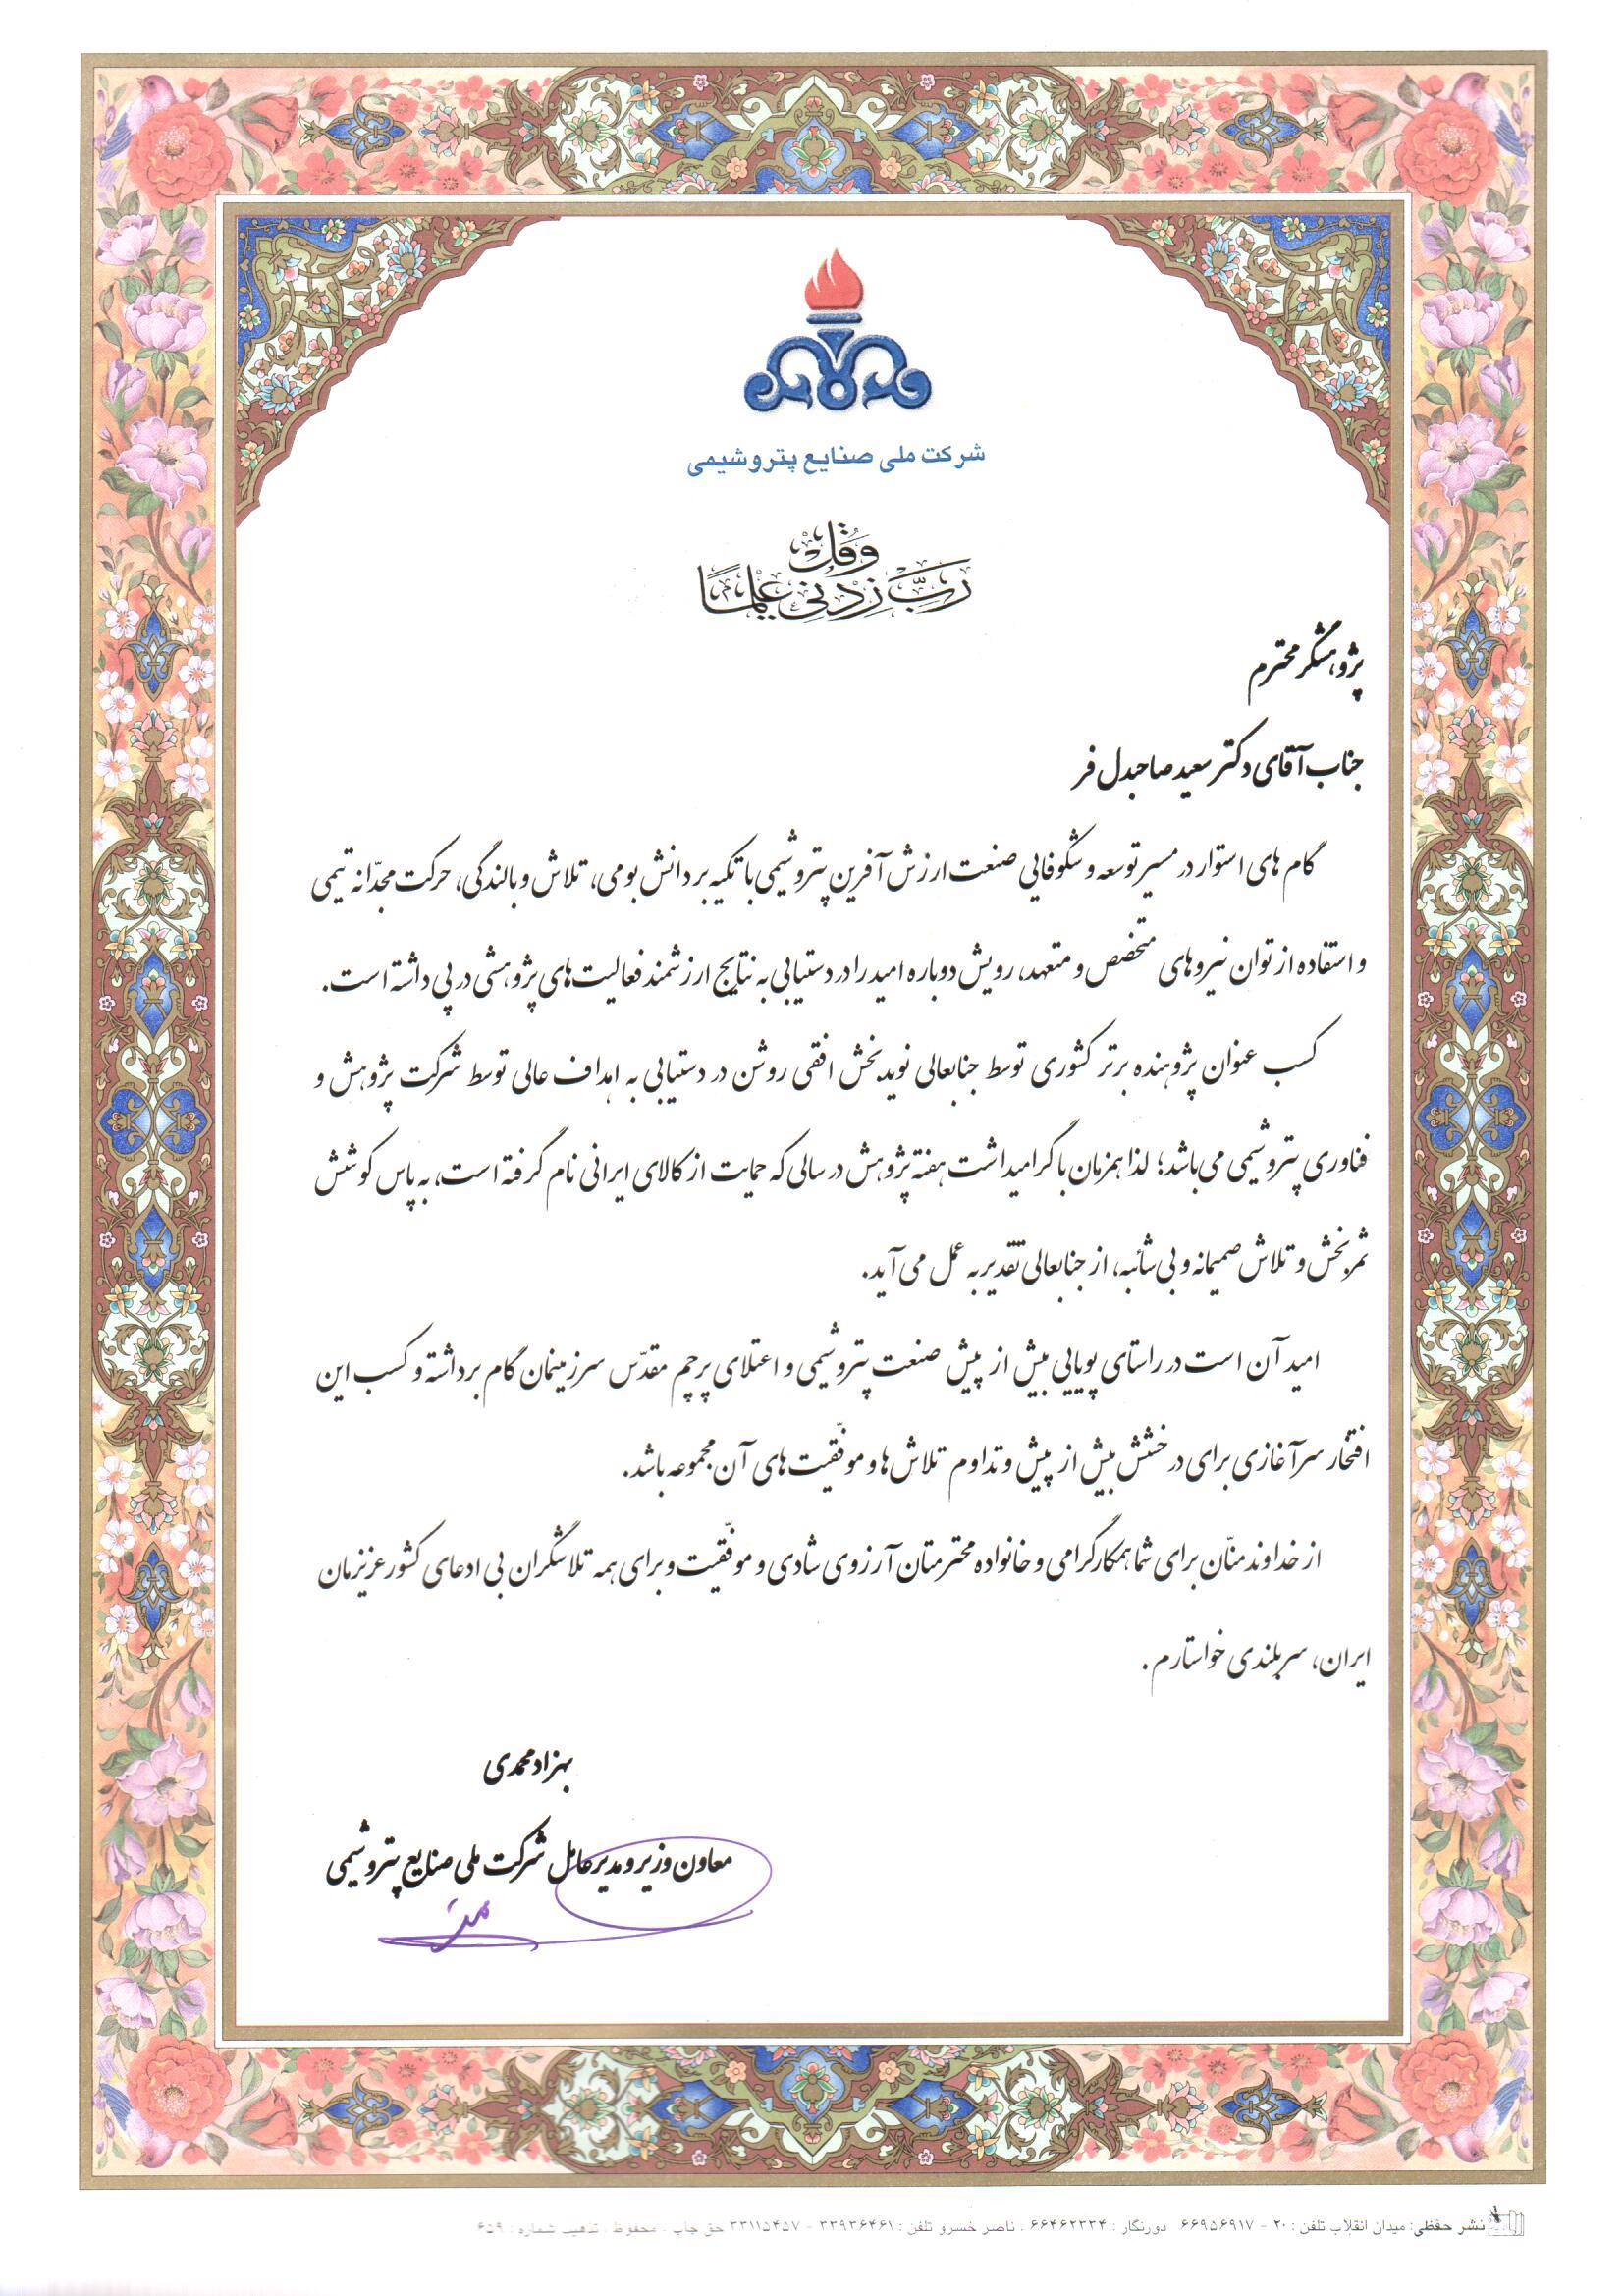 شرکت ملی صنایع پتروشیمی
وَقُلْ
رَبِّ زِدْنی عِلْماً
پژوهشگر محترم
جناب آقای دکتر سعید صاحبدل فر
گام های استوار در مسیر توسعه و شکوفایی صنعت ارزش آفرین پتروشیمی با تکیه بر دانش بومی، تلاش و بالندگی، حرکت مجدّانه تیمی
و استفاده از توان نیروهای متخصص و متعهد، رویش دوباره امید را در دستیابی به نتایج ارزشمند فعالیت های پژوهشی در پی داشته است.
کسب عنوان پژوهنده برتر کشوری توسط جنابعالی نویدبخش افقی روشن در دستیابی به اهداف عالی توسط شرکت پژوهش و
فناوری پتروشیمی می باشد؛ لذا همزمان با گرامیداشت هفته پژوهش در سالی که حمایت از کالای ایرانی نام گرفته است، به پاس کوشش
ثمربخش و تلاش صمیمانه و بی شائبه، از جنابعالی تقدیر به عمل می آید.
امید آن است در راستای پویایی بیش از پیش صنعت پتروشیمی و اعتلای پرچم مقدّس سرزمینمان گام برداشته و کسب این
افتخار سرآغازی برای درخشش بیش از پیش و تداوم تلاش ها و موفقیت های آن مجموعه باشد.
از خداوند منّان برای شما همکار گرامی و خانواده محترمتان آرزوی شادی و موفّقیت و برای همه تلاشگران بی ادعای کشور عزیزمان
ایران، سربلندی خواستارم.
بهزاد محمدی
معاون وزیر و مدیرعامل شرکت ملی صنایع پتروشیمی
نشر حفظی: میدان انقلاب تلفن : ۲۰ - ۶۶۹۵۶۹۱۷ دورنگار : ۶۶۴۶۲۳۳۴ . ناصر خسرو تلفن : ۳۳۹۳۶۴۶۱ - ۳۳۱۱۵۴۵۷ حق چاپ . محفوظ . تذهیب شماره : ۶۵۹